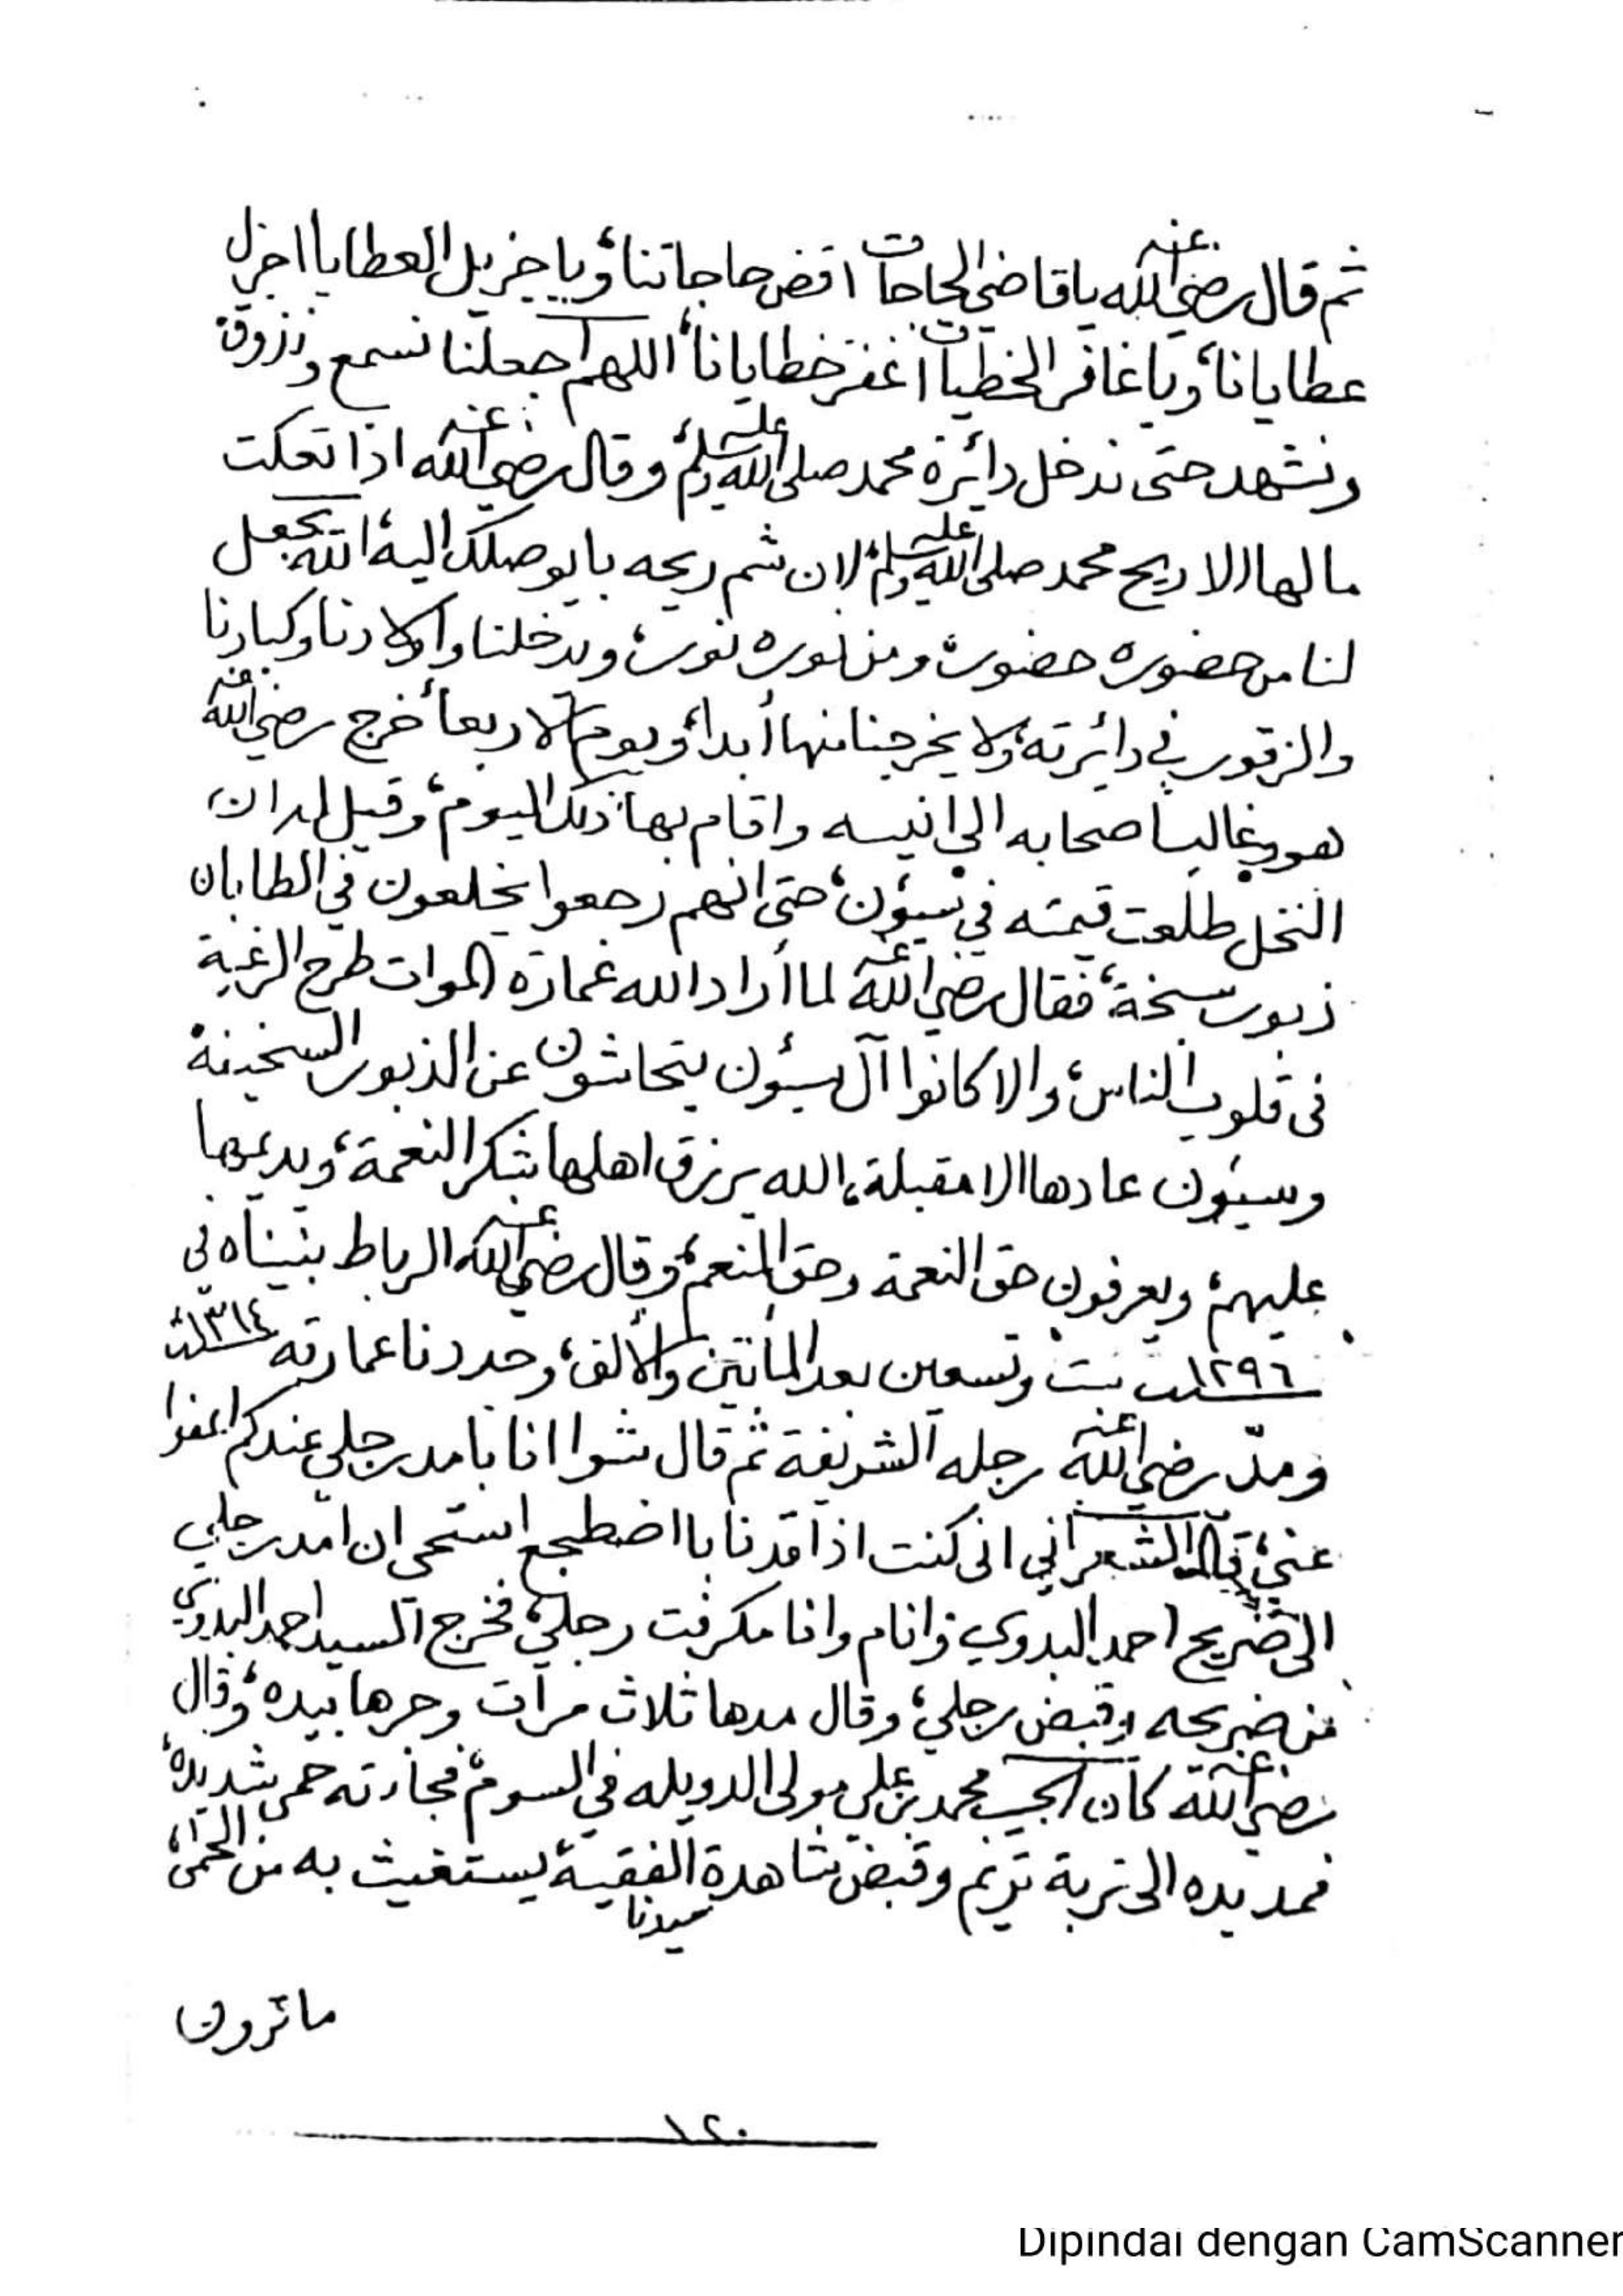 ثم قال رضي الله عنه ياقاضي الحاجات اقض حاجاتنا، ويا جزيل العطايا اجزل
عطايانا، ويا غافر الخطيات اغفر خطايانا، اللهم اجعلنا نسمع ونذوق
ونشهد حتى ندخل دائرة محمد صلى الله عليه وسلم، وقال رضي الله عنه اذا تعكت
مالها الا ريح محمد صلى الله عليه وسلم، لان شم ريحه بايوصلك اليه، الله يجعل
لنا من حضوره حضور، ومن نوره نور، ويدخلنا واولادنا وكبارنا
والزقور في دائرته، ولا يخرجنا منها أبدا، ويوم الاربعا خرج رضي الله عنه
هو وغالب اصحابه الى انيسه واقام بها ذلك اليوم، وقيل له ان
النخل طلعت قيمته في سيؤن، حتى انهم رجعوا يخلعون في الطابان
ذبور سخة، فقال رضي الله عنه لما أراد الله عمارة الموات طرح الرغبة
في قلوب الناس، والا كانوا آل سيؤن يتحاشون عن الذبور السخينة
وسيؤن عادها الا مقبلة، الله يرزق اهلها شكر النعمة، ويديمها
عليهم، ويعرفون حق النعمة وحق المنعم، وقال رضي الله عنه الرباط بنيناه في
١٢٩٦ ست وتسعين بعد المائتين والألف، وجددنا عمارته ١٣١٤
ومدّ رضي الله عنه رجله الشريفة ثم قال شوا انا بامد رجلي عندكم اعفوا
عني، قال الشعراني اني كنت اذا قدنا با اضطجع استحي ان امد رجلي
الى ضريح احمد البدوي وانام وانا مكرفت رجلي، فخرج السيد احمد البدوي
من ضريحه وقبض رجلي، وقال مدها ثلاث مرات وجرها بيده، وقال
رضي الله عنه كان الحبيب محمد بن علي مولى الدويله في السوم، فجاءته حمى شديدة
فمد يده الى تربة تريم وقبض شاهدة سيدنا الفقيه يستغيث به من الحمى،
ماترون
١٢٠
Dipindai dengan CamScanner